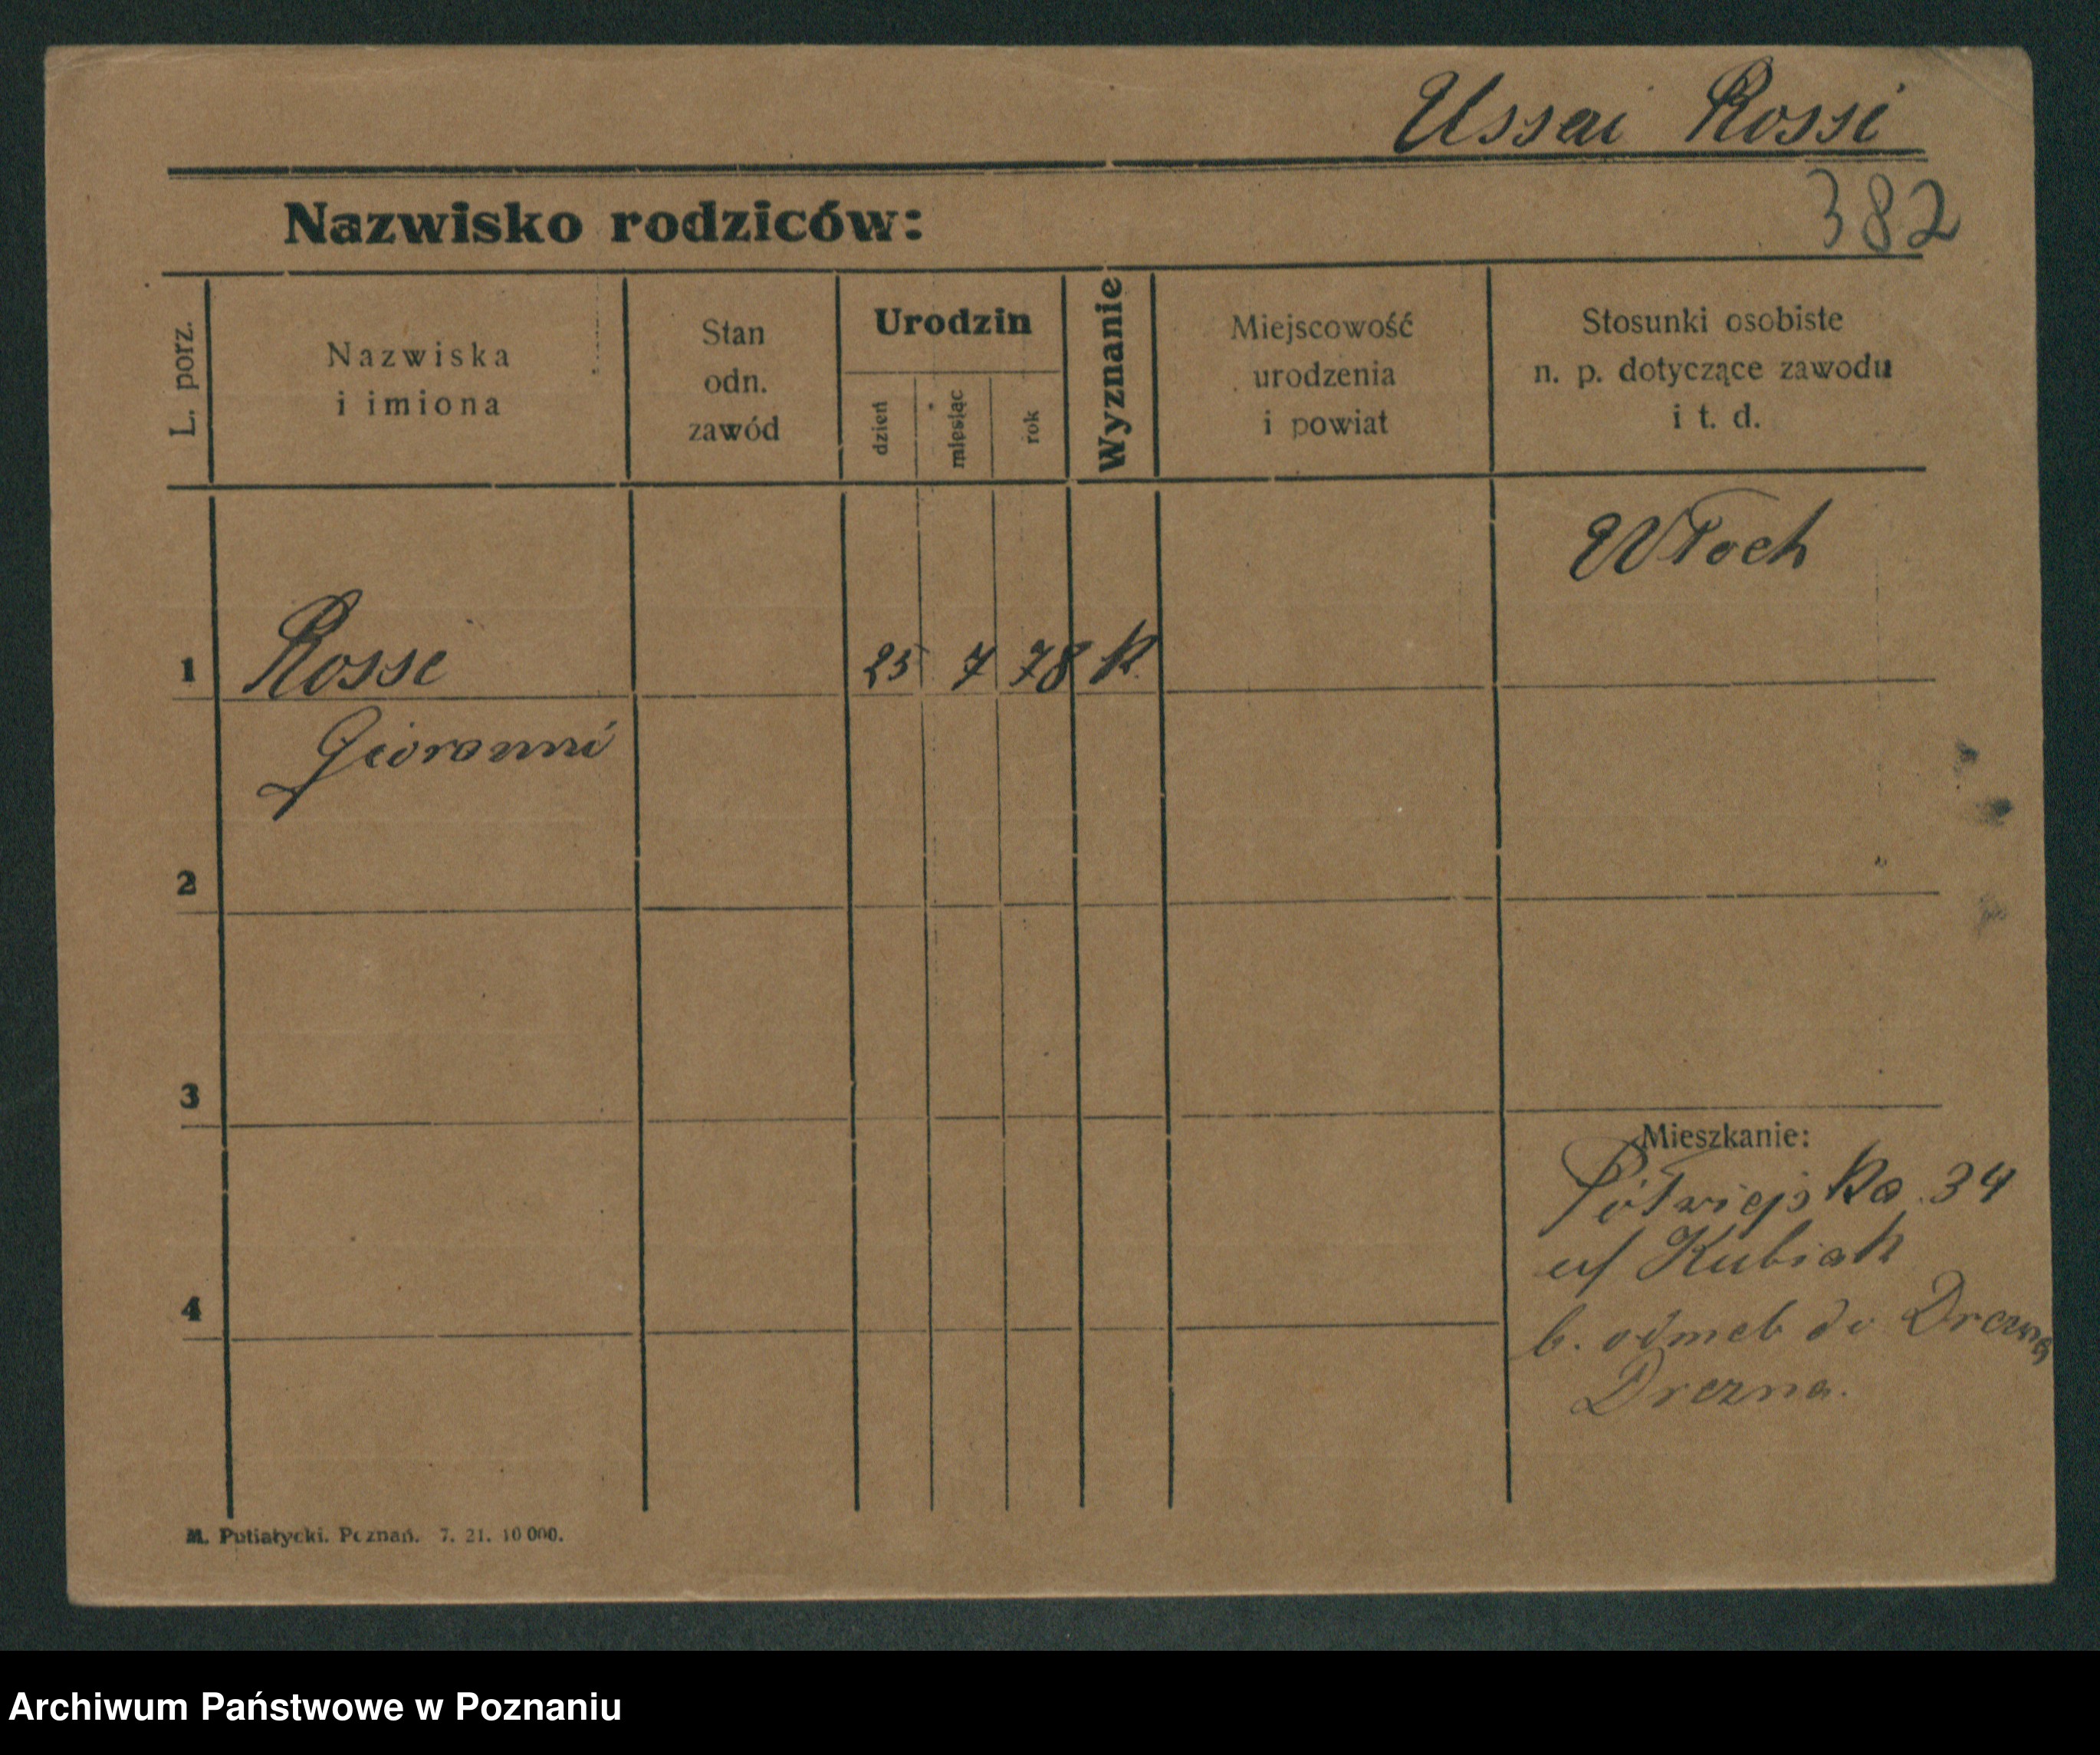 Ussai Rossi
382
Nazwisko rodziców:
L. porz.
Nazwiska
i imiona
Stan
odn.
zawód
Urodzin
dzień
miesiąc
rok
Wyznanie
Miejscowość
urodzenia
i powiat
Stosunki osobiste
n. p. dotyczące zawodu
i t. d.
Włoch
1 Rossi 25 7 78 k.
Giovanni
2
3
Mieszkanie:
Półwiejska 34
u/ Kubiak
4
b. odmeb do
Drezna.
M. Putiatycki. Poznań. 7. 21. 10 000.
Archiwum Państwowe w Poznaniu